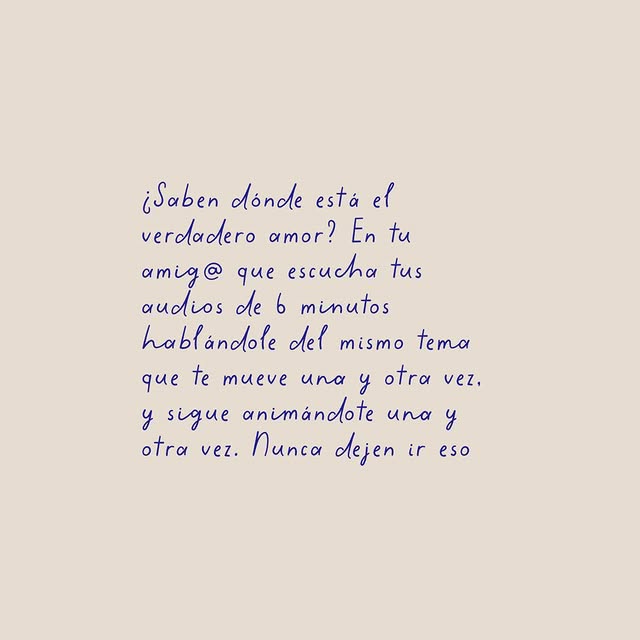 ¿Saben dónde está el
verdadero amor? En tu
amig@ que escucha tus
audios de 6 minutos
hablándole del mismo tema
que te mueve una y otra vez,
y sigue animándote una y
otra vez. Nunca dejen ir eso